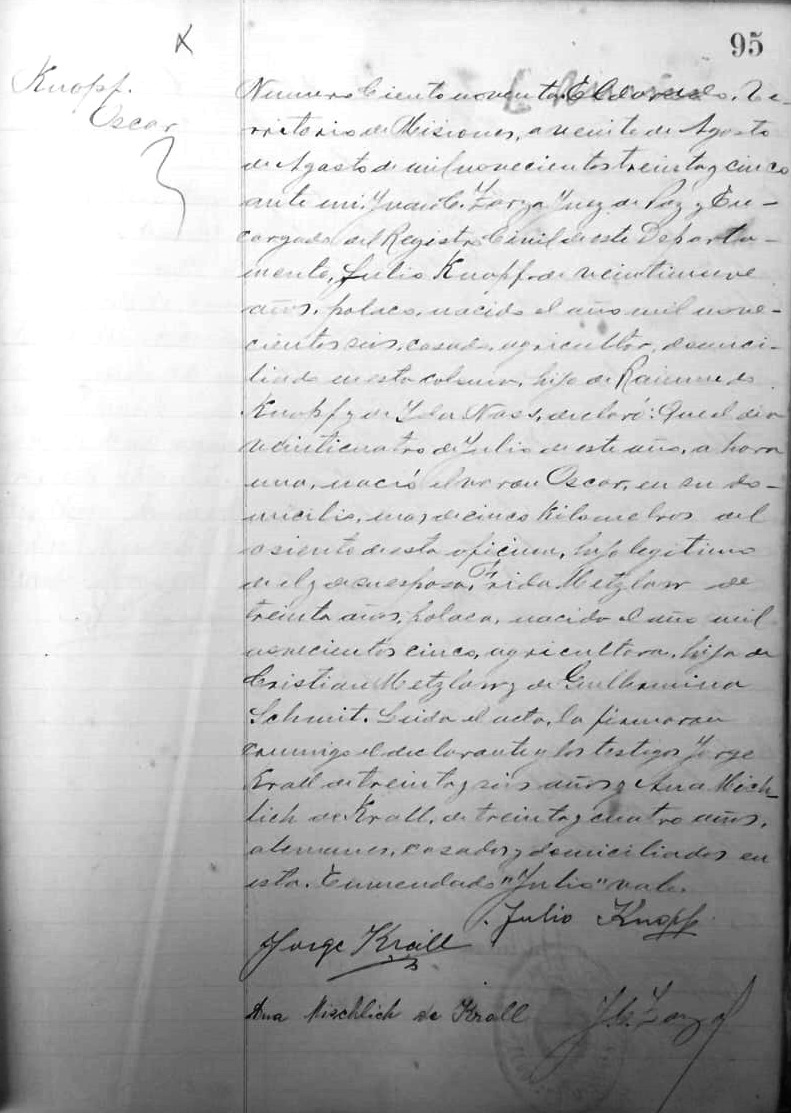 95
Knopf.
Oscar
Numero Ciento noventa. Eldorado, Te-
rritorio de Misiones, a veinte de Agosto
de Agosto de mil novecientos treinta y cinco
ante mi, Juan C. Zarza Juez de Paz y En-
cargado del Registro Civil de este Departa-
mento, Julio Knopf, de veintinueve
años, polaco, nacido el año mil nove-
cientos seis, casado, agricultor, domici-
liado en esta colonia, hijo de Raimundo
Knopf y de Ida Nass, declaró: Que el dia
veinticuatro de Julio de este año, a hora
una, nació el varon Oscar, en su do-
micilio, mas de cinco Kilometros del
asiento de esta oficina, hijo legitimo
de el y de su esposa, Frida Metzlaw de
treinta años, polaca, nacido el año mil
novecientos cinco, agricultora, hija de
Cristian Metzlaw y de Guillermina
Schmit. Leida el acta, la firmaron
conmigo el declarante y los testigos Jorge
Krall de treinta y seis años y Ana Misch
lich de Krall, de treinta y cuatro años,
alemanes, casados y domiciliados en
esta. Enmendado "Julio" vale.
Julio Knopf
Jorge Krall
Ana Mischlich de Krall
J. C. Zarza